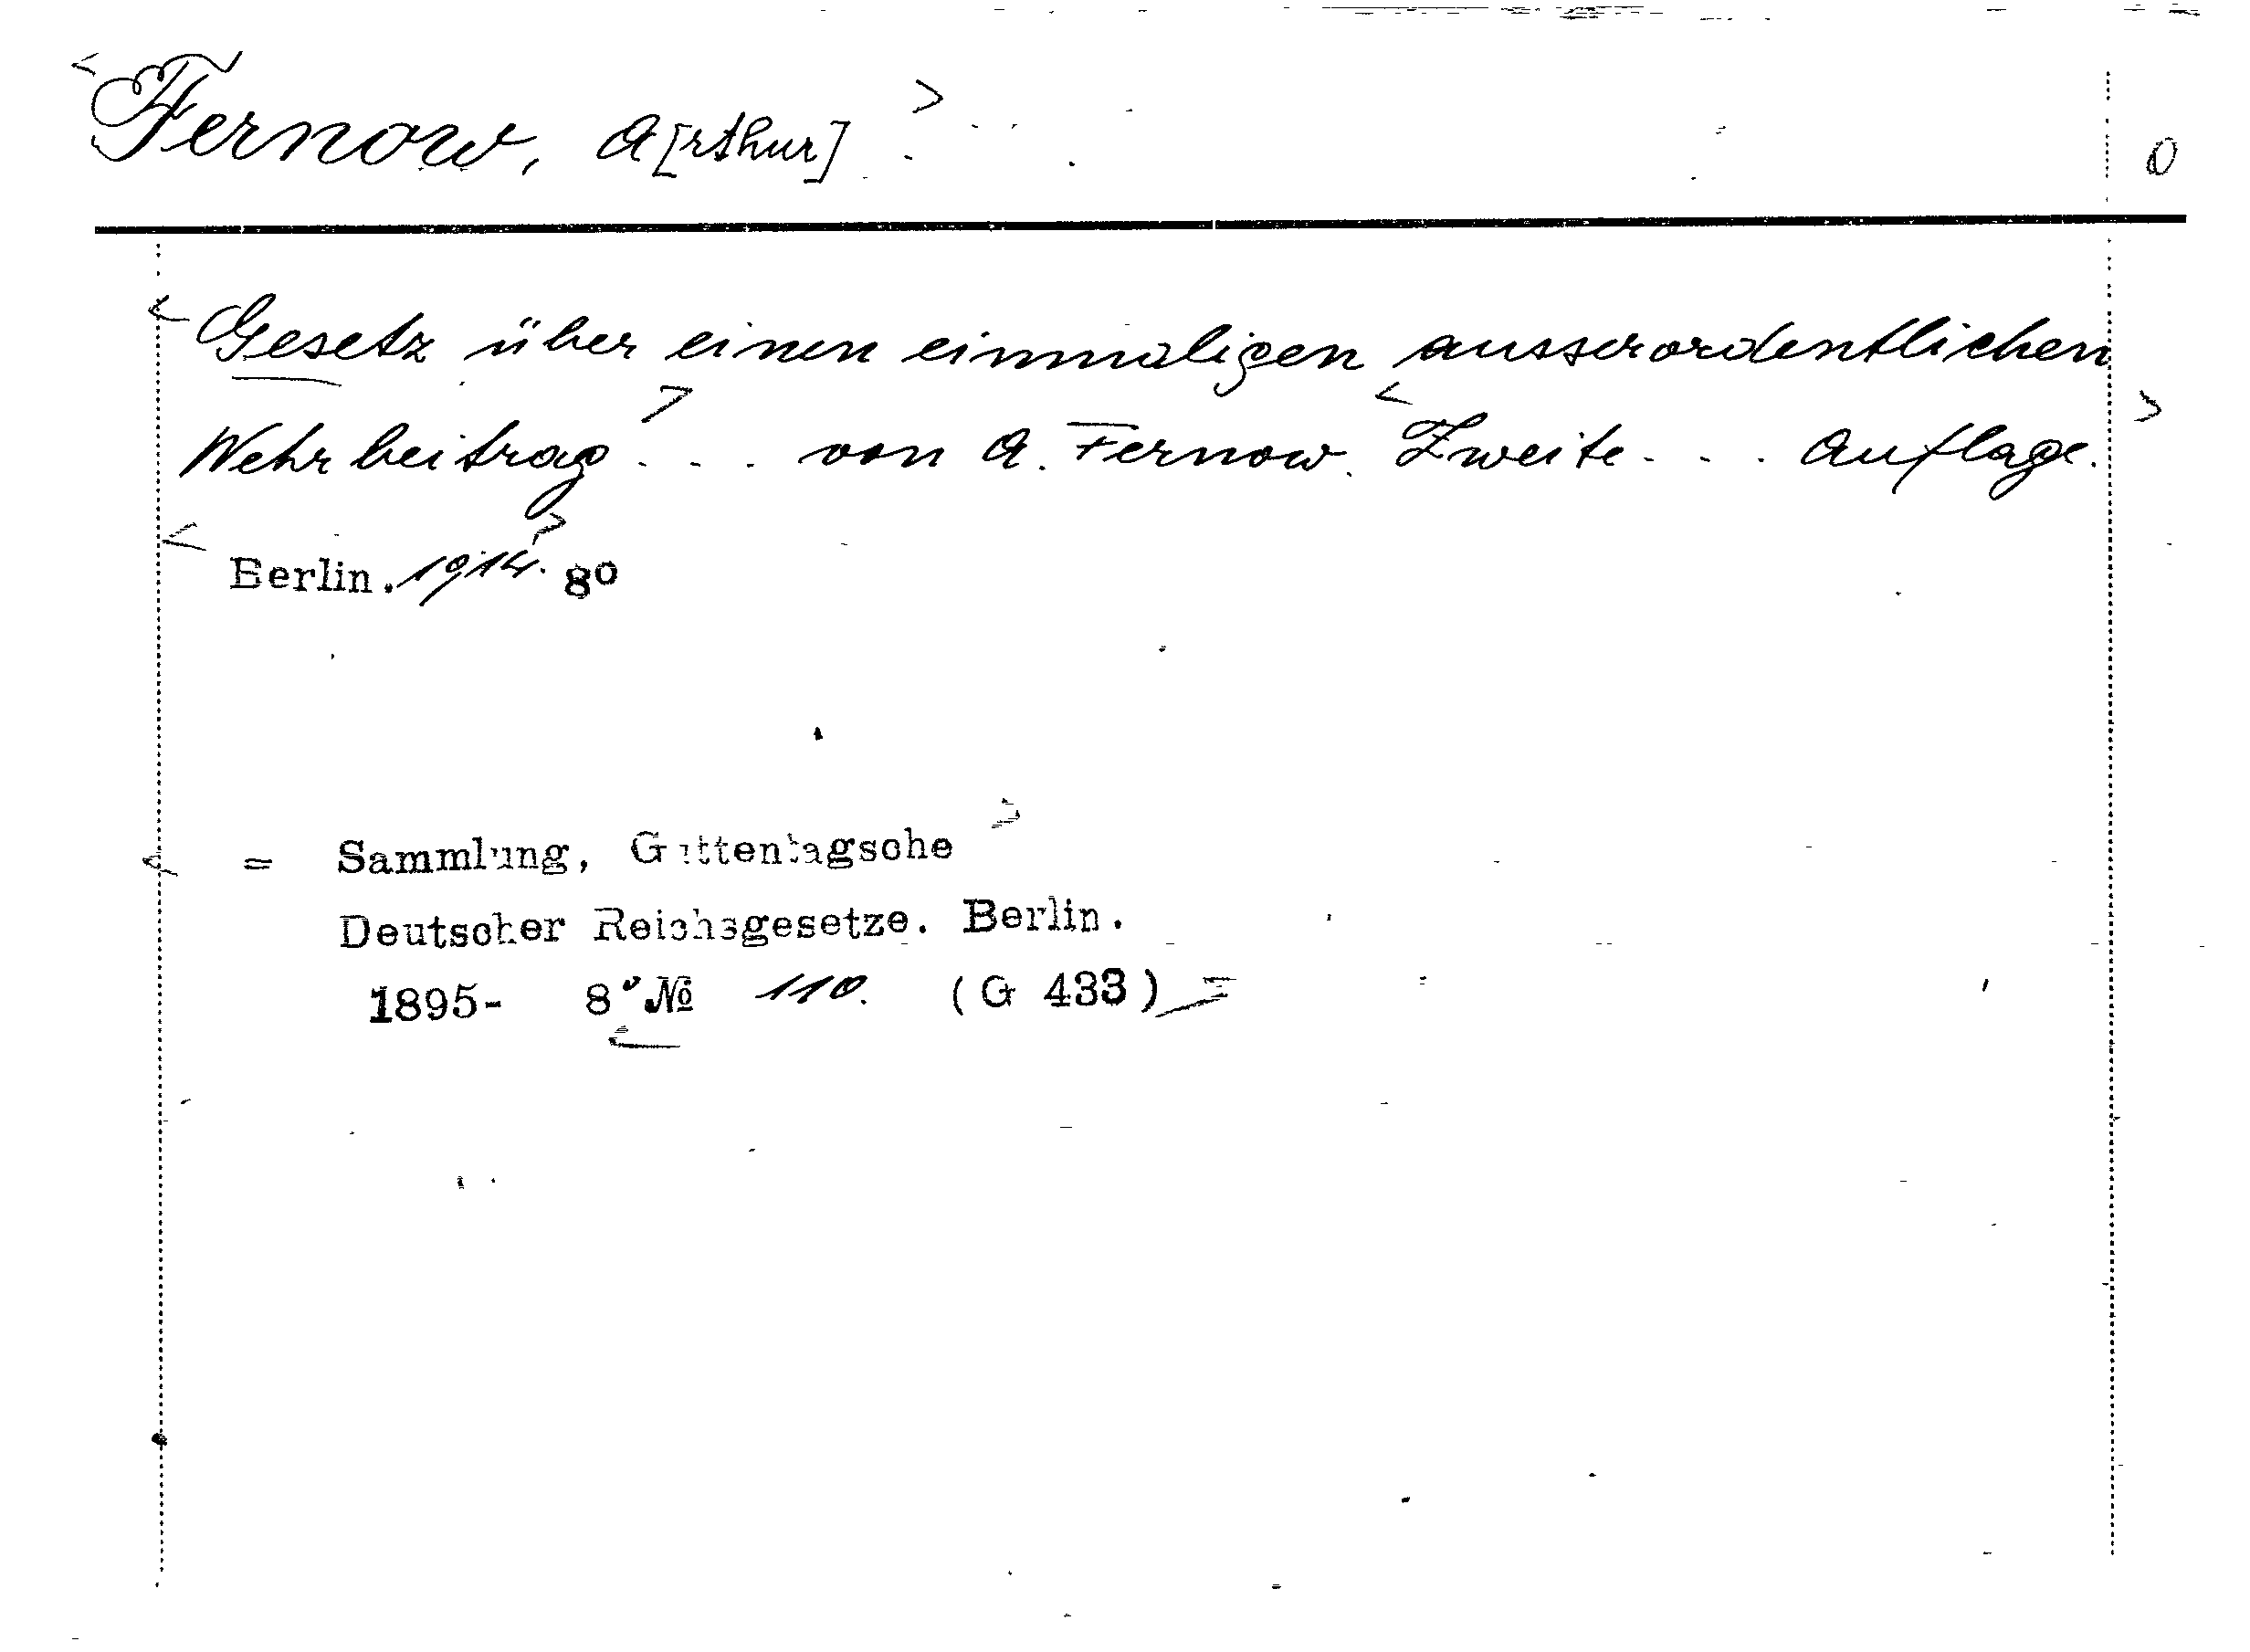 <Fernow, A[rthur]> 0
<Gesetz über einen einmaligen ausserordentlichen
Wehrbeitrag> . . . von A. Fernow. <Zweite . . . Auflage.>
<Berlin. 1914.> 8º
< = Sammlung, Guttentagsche>
Deutscher Reichsgesetze. Berlin.
1895- 8º <№ 110. (G 433)>